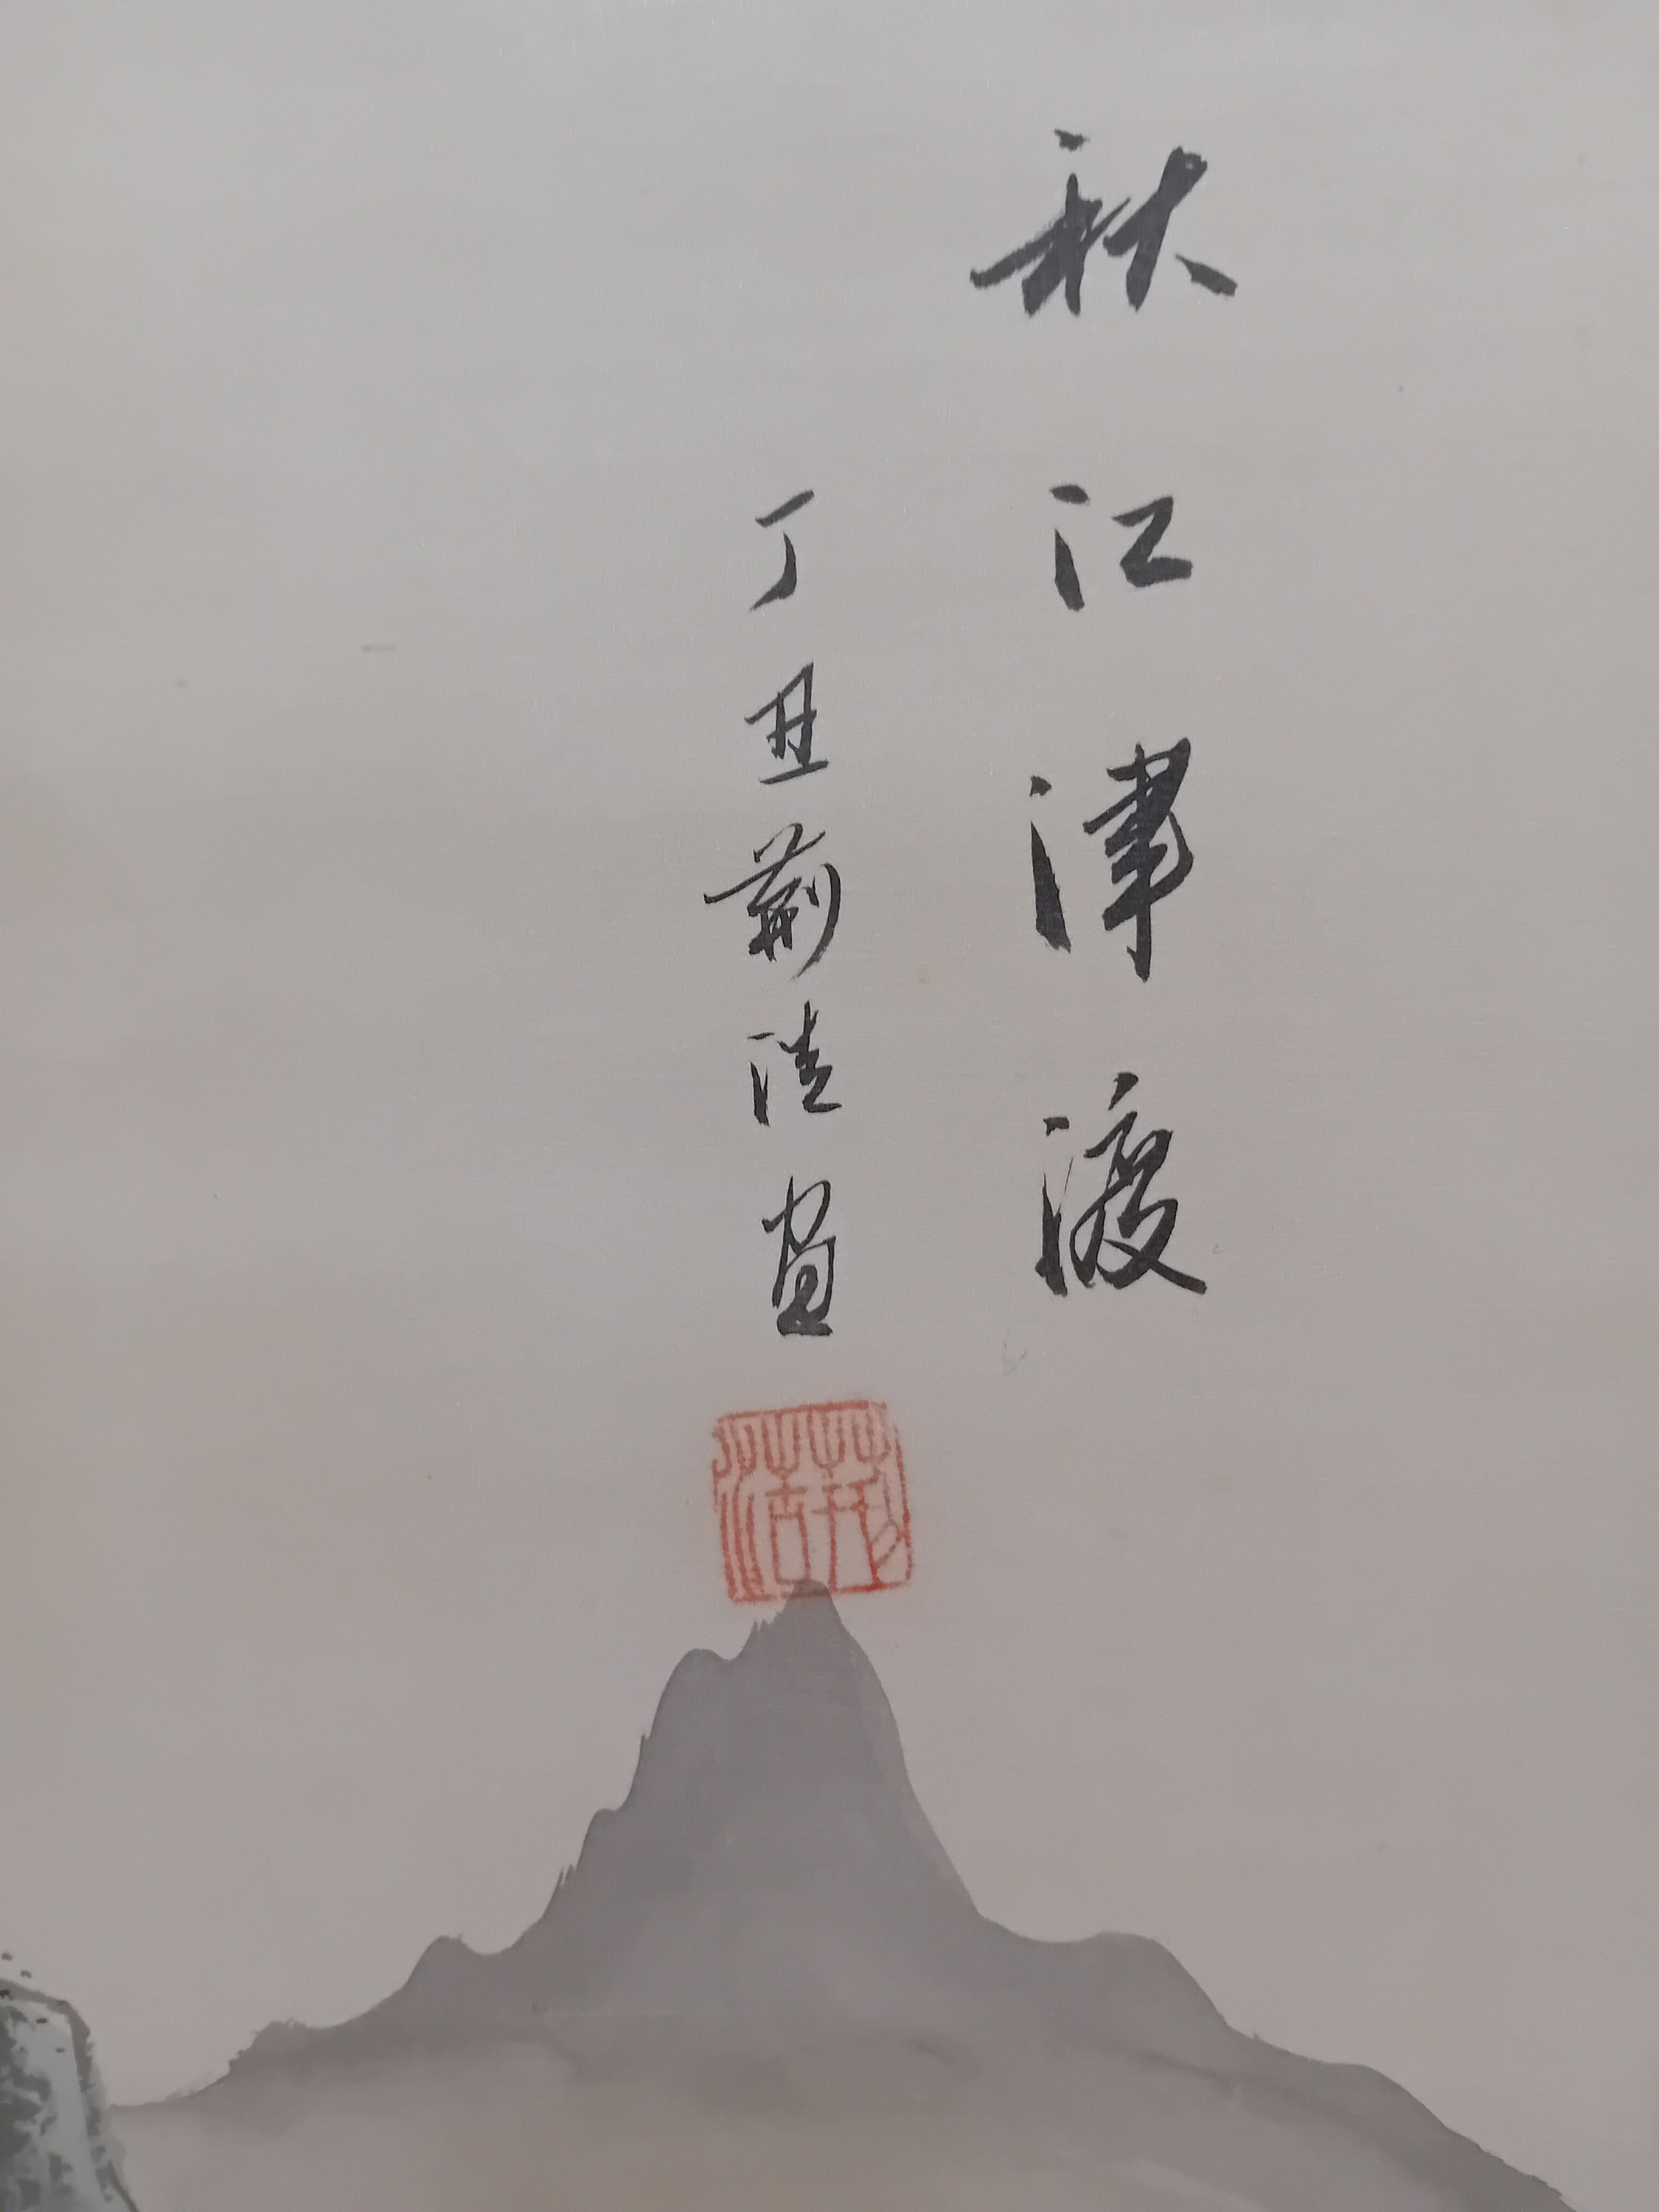 秋江津渡
丁丑荊浩畫
荊浩